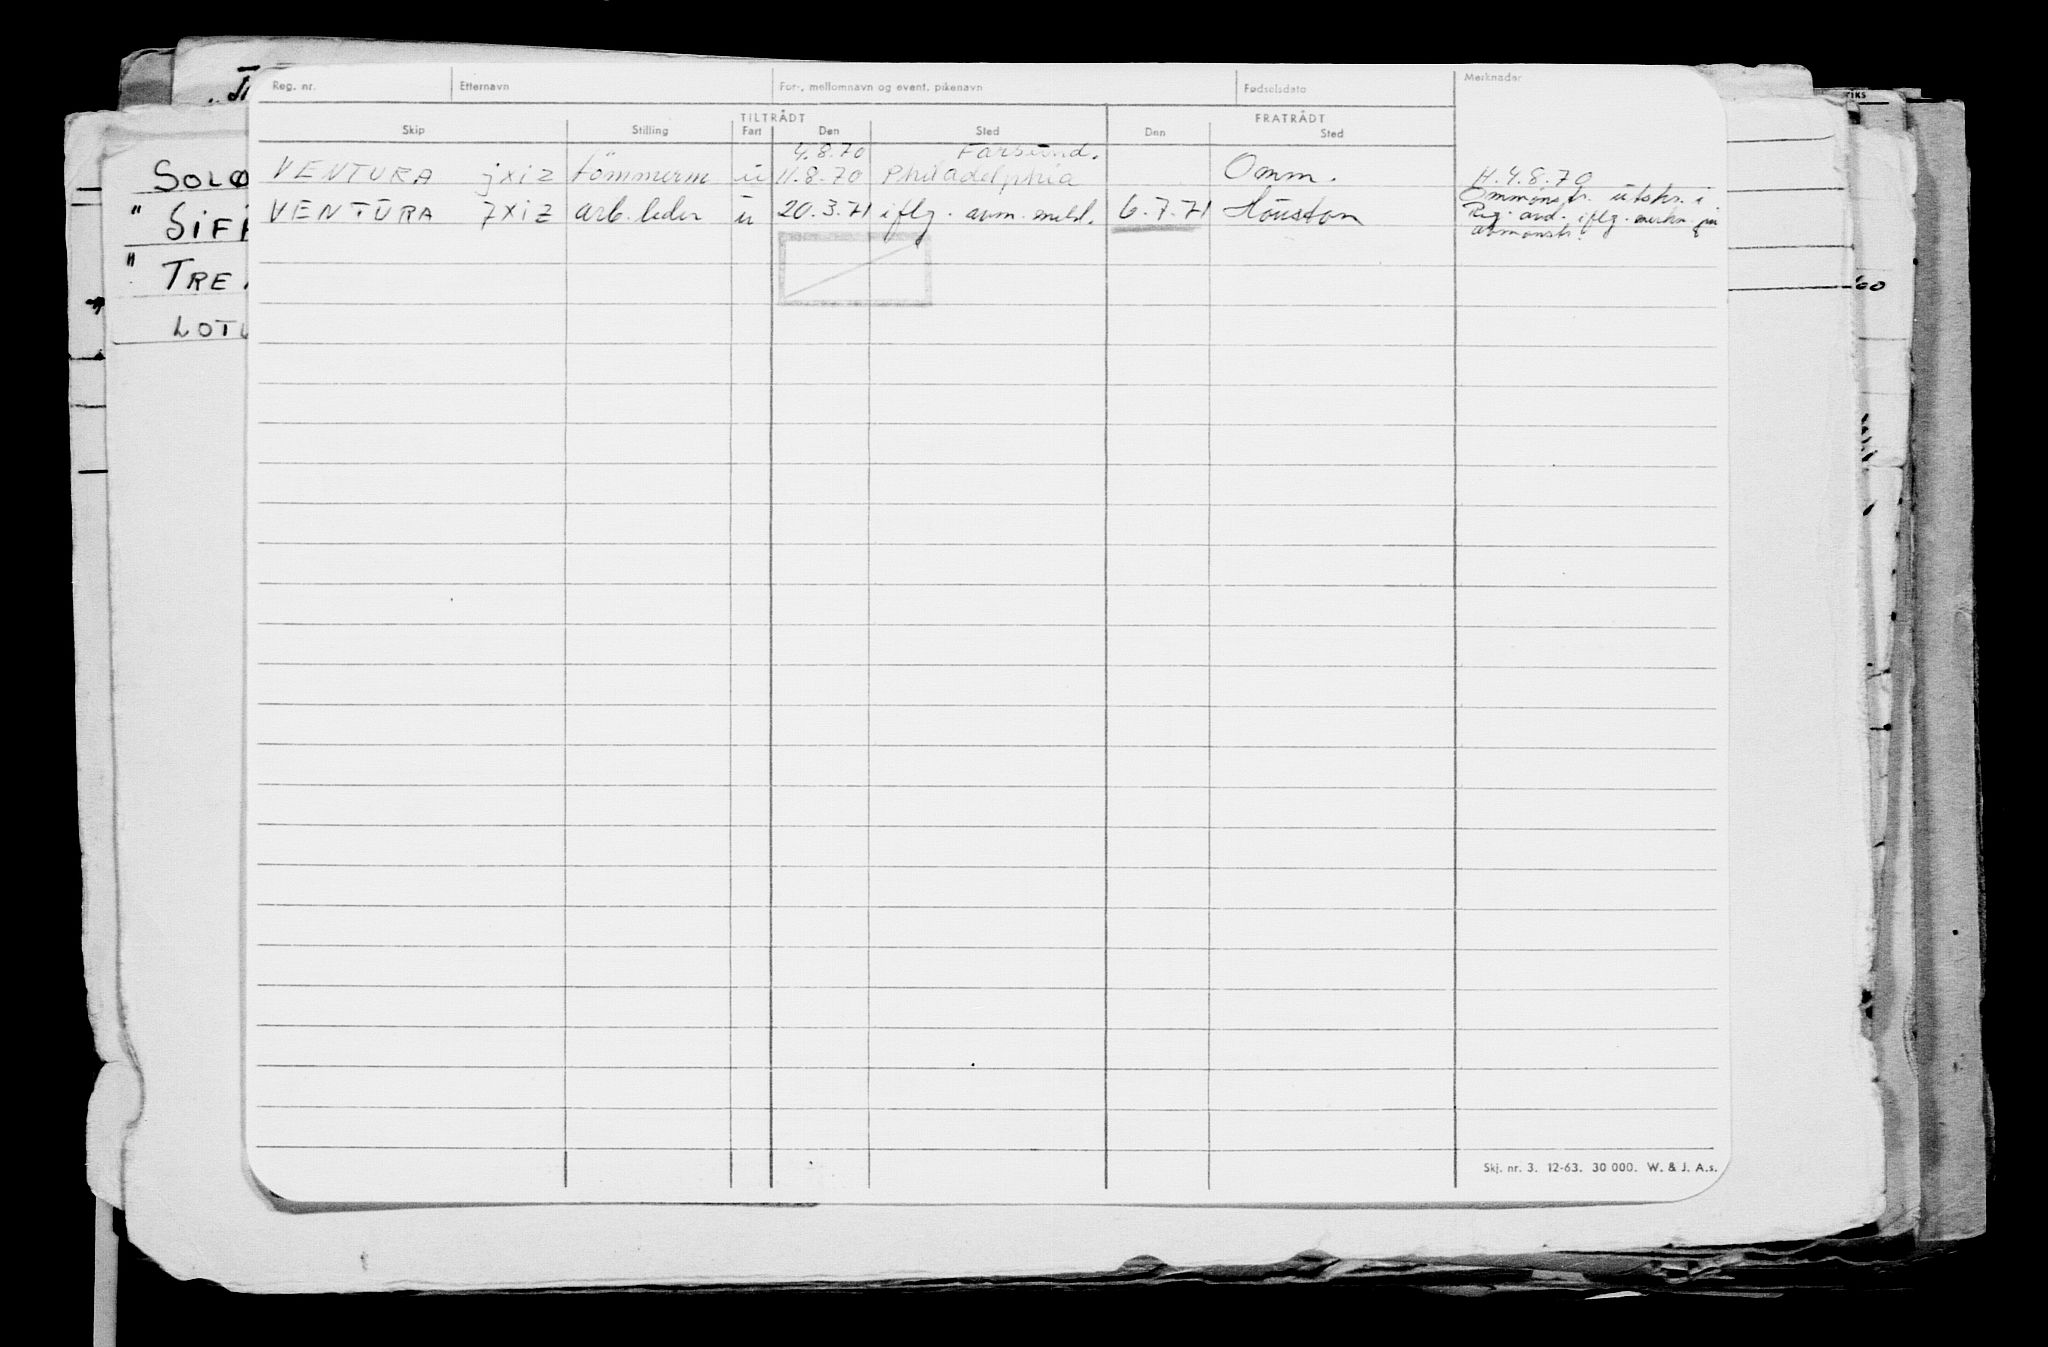 Reg. nr. Etternavn For-, mellomnavn og event. pikenavn Fødselsdato Merknader
TILTRÅDT FRATRÅDT
Skip Stilling Fart Den Sted Den Sted
4.8.70 Farsund.
VENTURA jxiz tömmerm u 11.8.70 Philadelphia Omm. H. 4.8.70
VENTURA jxiz arb. leder u 20.3.71 iflg. avm. meld. 6.7.71 Houston Ommønstr. utskr. i
Reg. avd. iflg. merkn. på
avmønstr.
SOLØ
" SIF
" TRE
LOTU
60
Skj. nr. 3. 12-63. 30 000. W. & J. A.s.